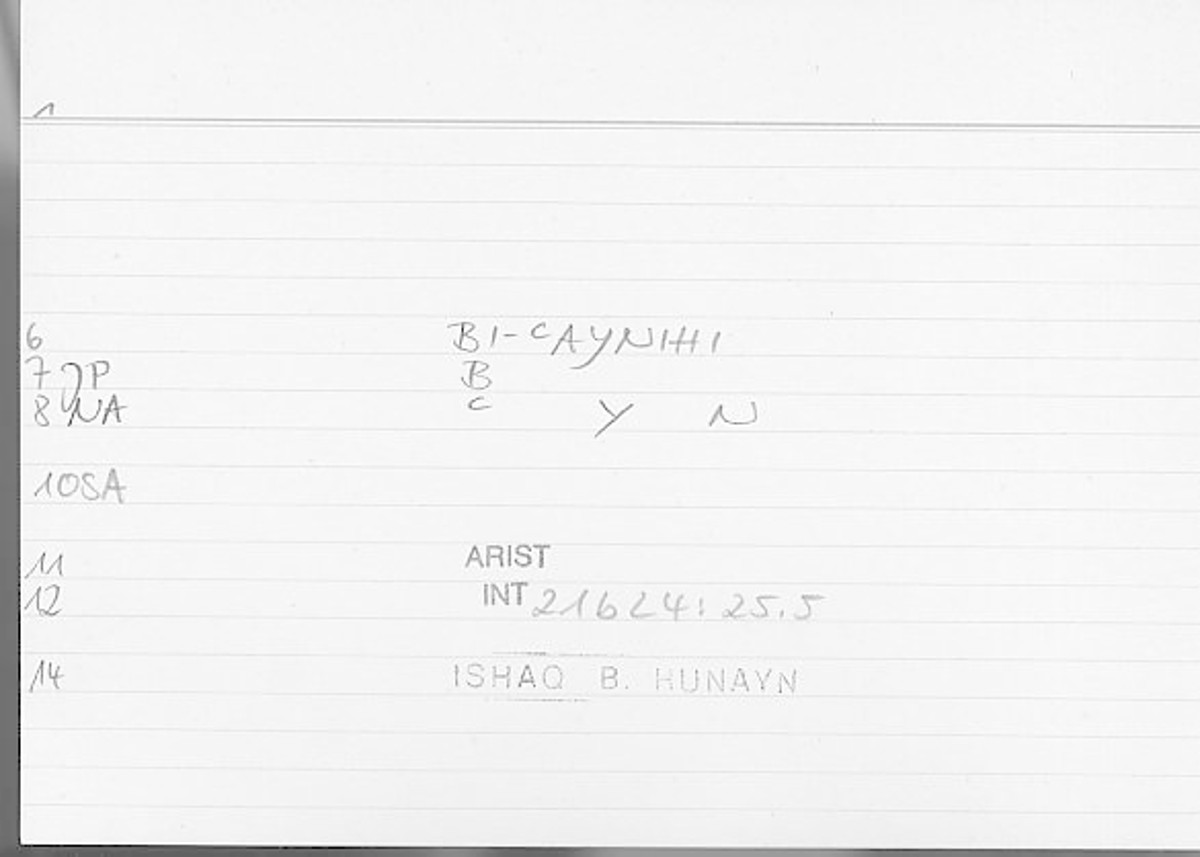 1
6 BI-CAYNIHI
7 JP B
8 NA C Y N
10SA
11 ARIST
12 INT 21624:25.5
14 ISHAQ B. HUNAYN